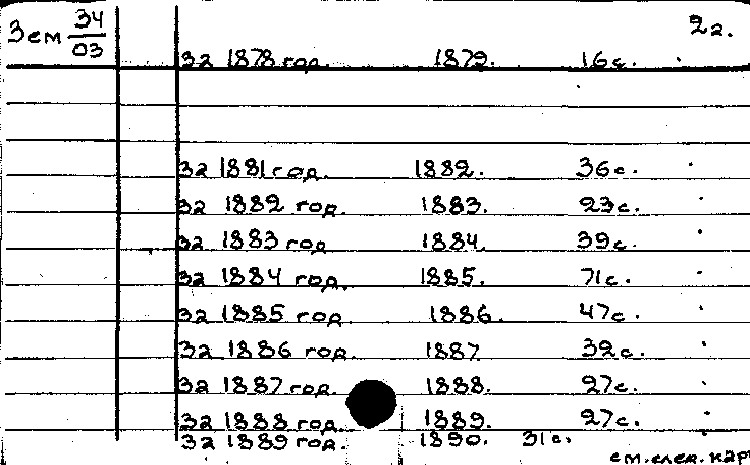 Зем 34/03
2г.
за 1878 год. 1879. 16с.
за 1881 год. 1882. 36с.
за 1882 год. 1883. 23с.
за 1883 год 1884. 39с.
за 1884 год. 1885. 71с.
за 1885 год 1886. 47с.
за 1886 год. 1887 32с.
за 1887 год. 1888. 27с.
за 1888 год. 1889. 27с.
за 1889 год. 1890. 31с.
см. след. кар